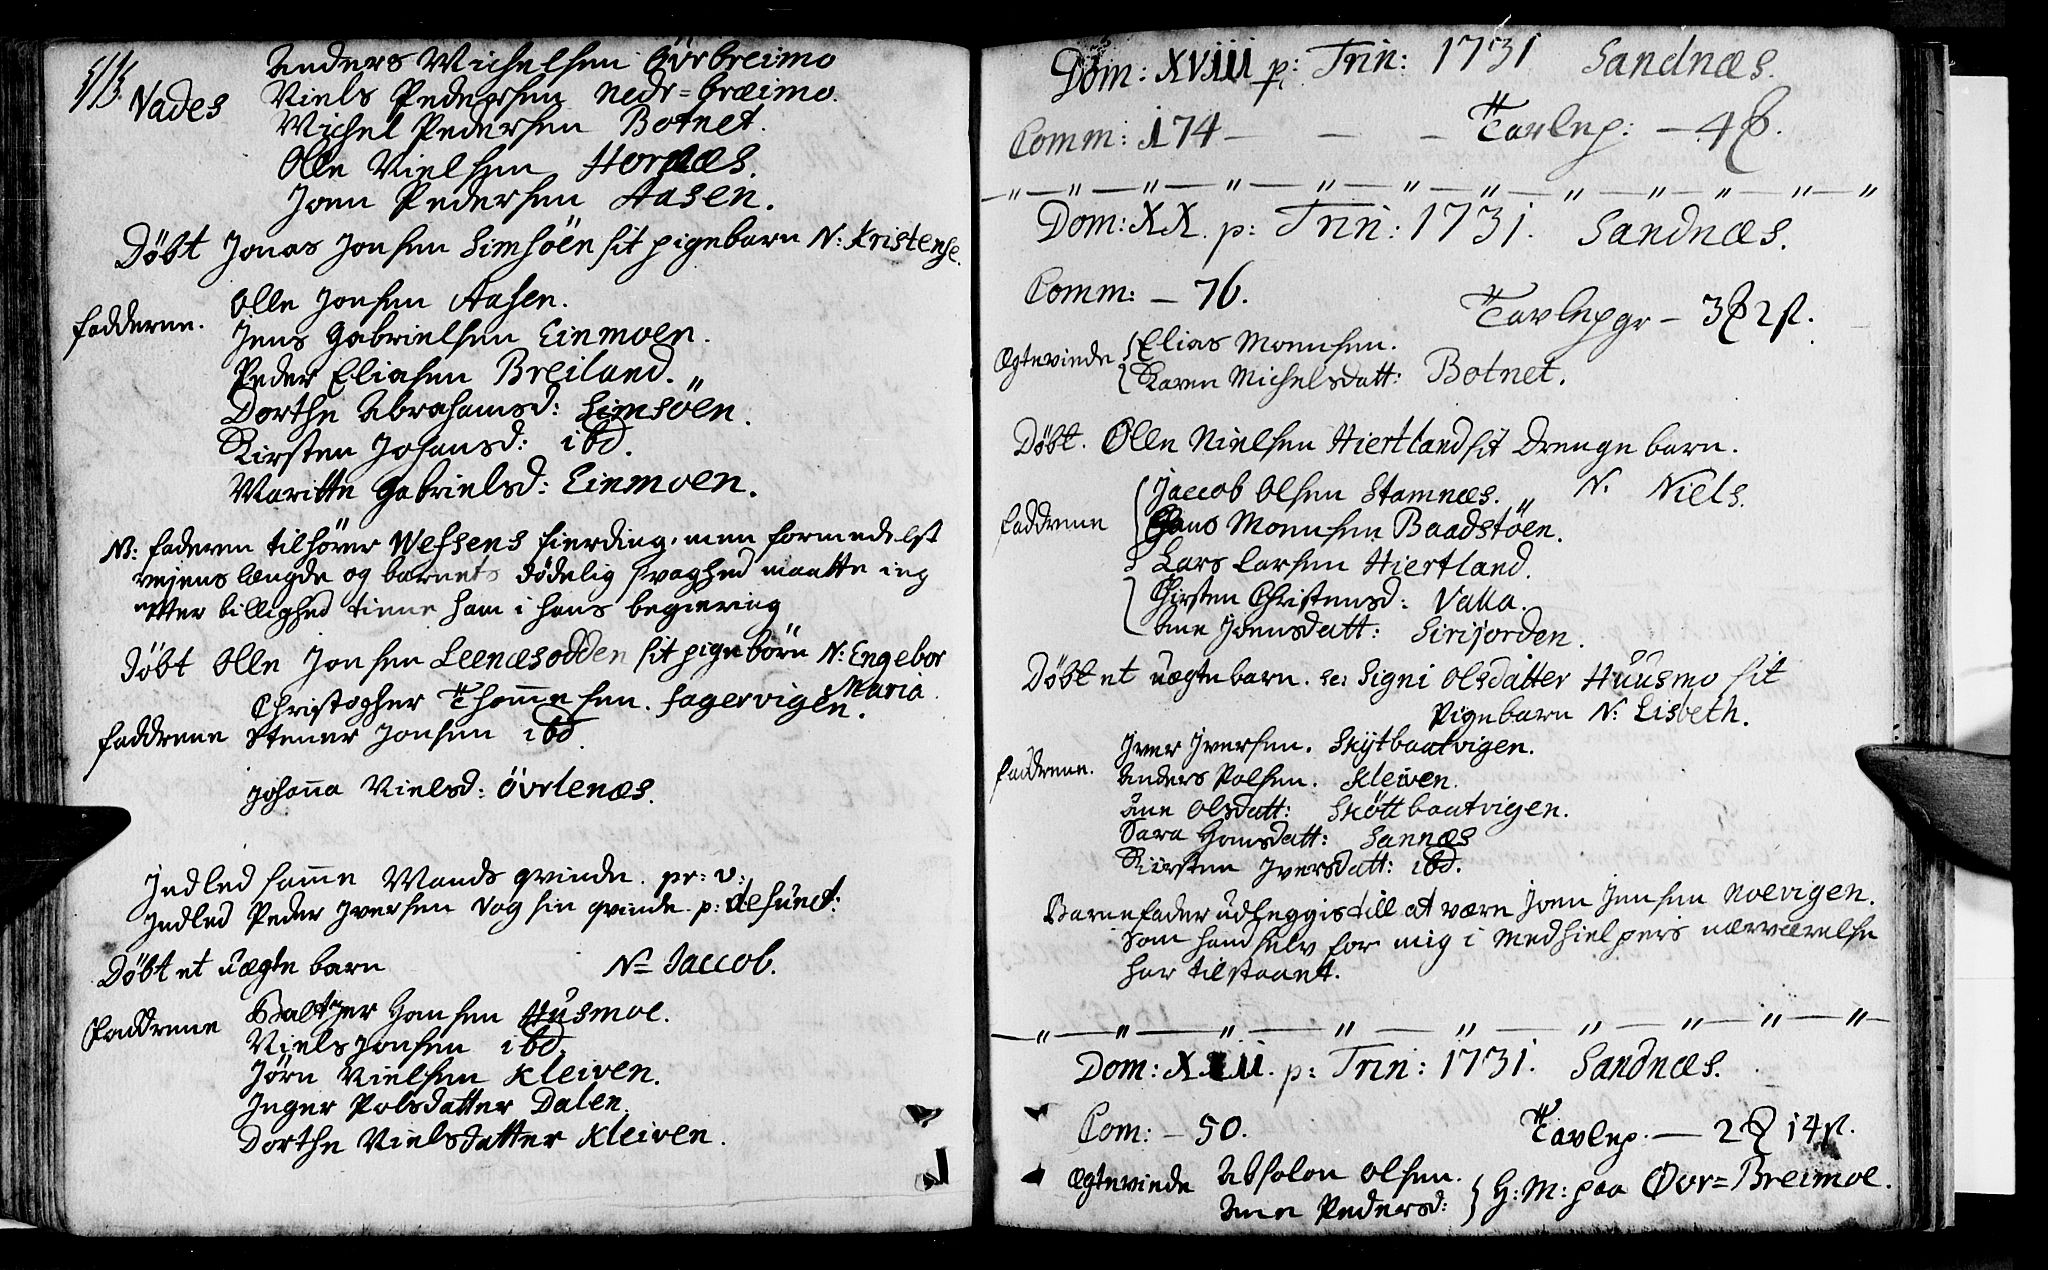 Anders Michelsen Övrbreimo
Vades Niels Pedersen nedr=bræimo.
Michel Pedersen Botnet.
Olle Nielsen Hornæs.
Joen Pedersen Aasen.
Döbt Jonas Jonsen Simsöen sit pigebarn N: Kristense.
Olle Jonsen Aasen.
fadderne. Jens Gabrielsen Einmoen.
Peder Eliasen Breiland.
Dorthe Abrahamsd: Simsöen.
Kirsten Johansd: ibd.
Maritte Gabrielsd: Einmoen.
N: faderen tilhörer Wefsens fierding, men formedelst
veiens længde og barnets dödelig svaghed maatte ieg
efter billighed tiene ham i hans begiering
Döbt Olle Jonsen Leenæsodden sit pigebörn N: Engebor
Maria
Christopher Thommesen. fagervigen.
faddrene Stener Jonsen ibd.
Johanna Nielsd: Övrlenæs.
Indled samme Mands qvinde. pr: v:
Indled Peder Iversen Dag sin qvinde. p: defunct:
Döbt et uægte barn N= Jaccob.
Faddrene Baltzer Hansen Husmoe.
Niels Jonsen ibd.
Jörn Nielsen Kleiven.
Inger Polsdatter Dalen.
Dorthe Nielsdatter Kleiven.
Dom: XVIII p: Trin: 1731 Sandnæs.
Comm: 174 — — — Tavlep: — 4
Dom: XX. p: Trin: 1731. Sandnæs.
Comm: — 76.
Tavlepgr — 3 2 ß.
Ægtevviede Elias Monsen.
Karen Michelsdatt: Botnet.
Döbt. Olle Nielsen Hiertland sit Drenge barn.
N. Niels.
Jaccob Olsen Stamnæs.
faddrene Hans Monsen Baadstöen.
Lars Larsen Hiertland.
Chirsten Christensd: Valla.
Ane Joensdatt: Sirijorden.
Döbt et uægte barn. sc: Signi Olsdatter Huusmo sit
Pigebarn N: Lisbeth.
Iver Iversen. Skytbaatvigen.
faddrene. Anders Polsen. Kleiven.
Ane Olsdatt: Sköttbaatvigen.
Sara Hansdatt: Sannæs
Kirsten Iversdatt: ibd.
Barnefader udlegges till at være Joen Jensen Noevigen.
Som hand selv for mig i Medhielpers nærværelse
har tilstaaet.
Dom: XXII. p: Trin: 1731. Sandnæs.
Com: — 50. Tavlep. — 2 14 ß.
Ægtevviede Absolon Olsen.
Ane Pedersd: H: M: paa Övr=Breimoe.